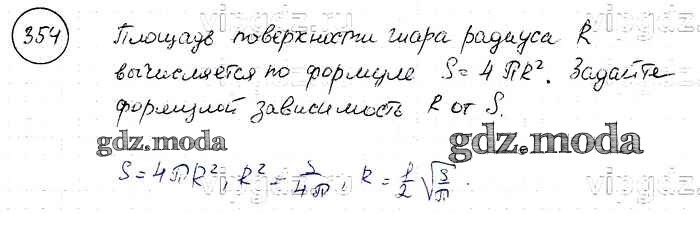 354 Площадь поверхности шара радиуса R
вычисляется по формуле S = 4πR². Задайте
формулой зависимость R от S.
gdz.moda gdz.moda
S = 4πR², R² = S/4π, R = 1/2 √S/π.